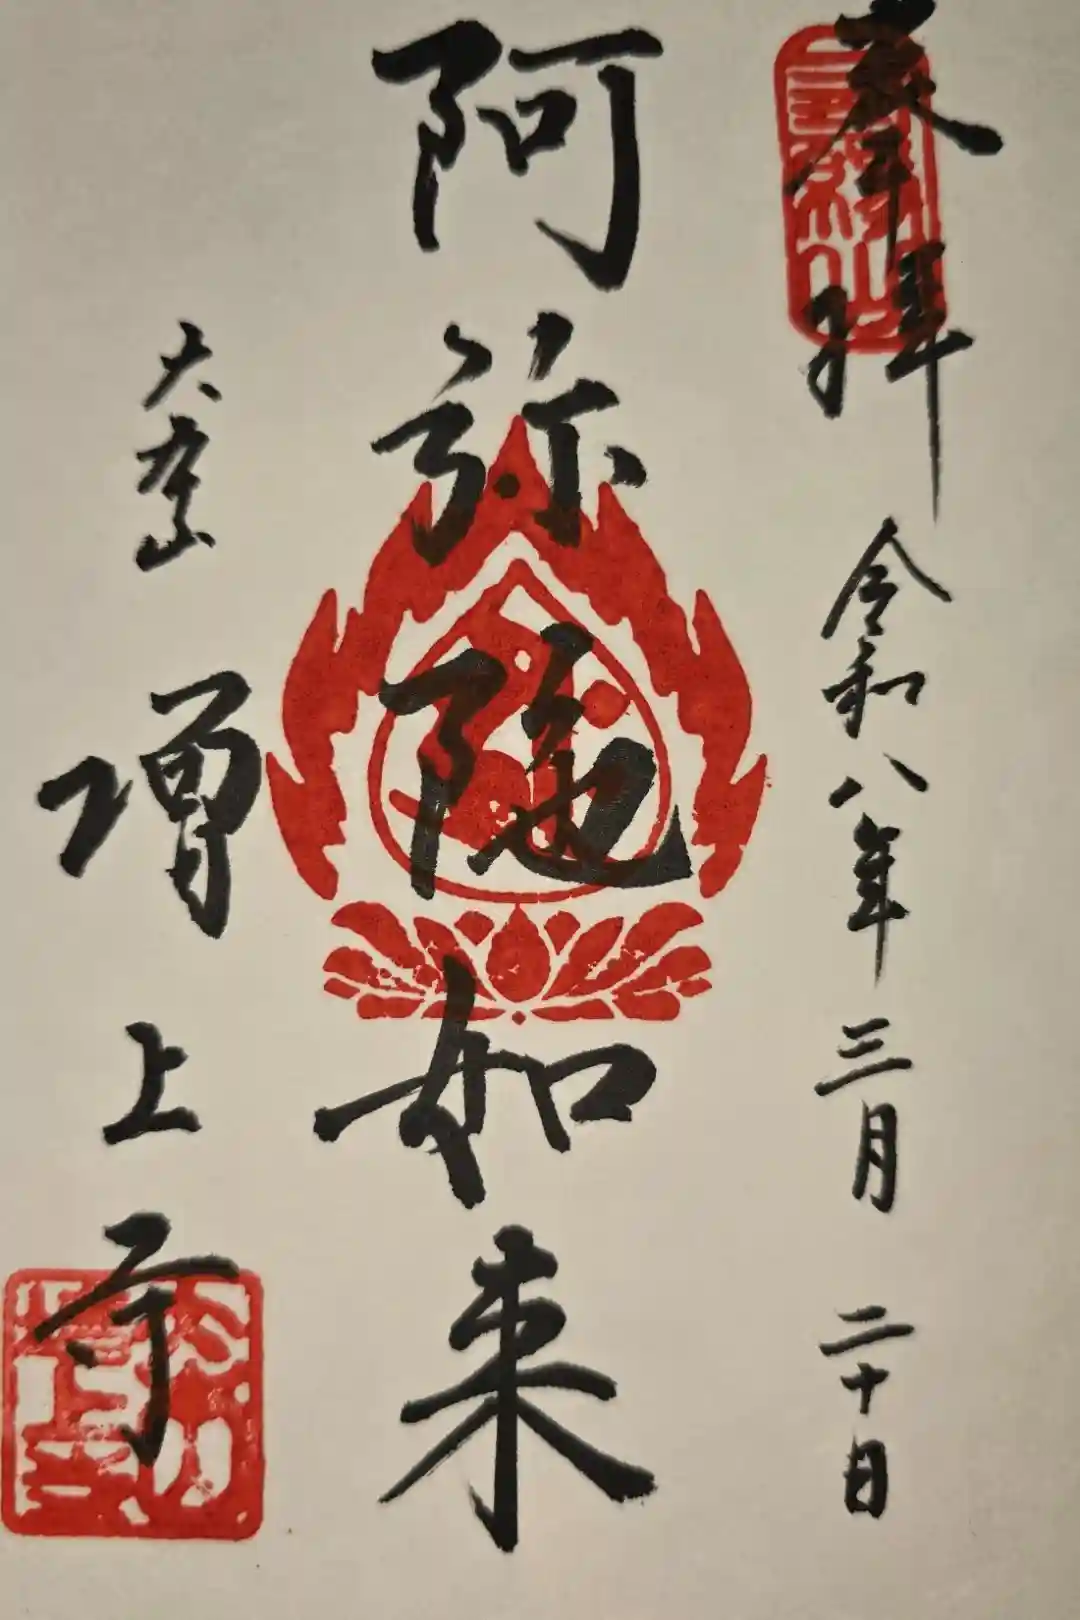 奉拝 令和八年三月二十日
阿弥陀如来
増上寺